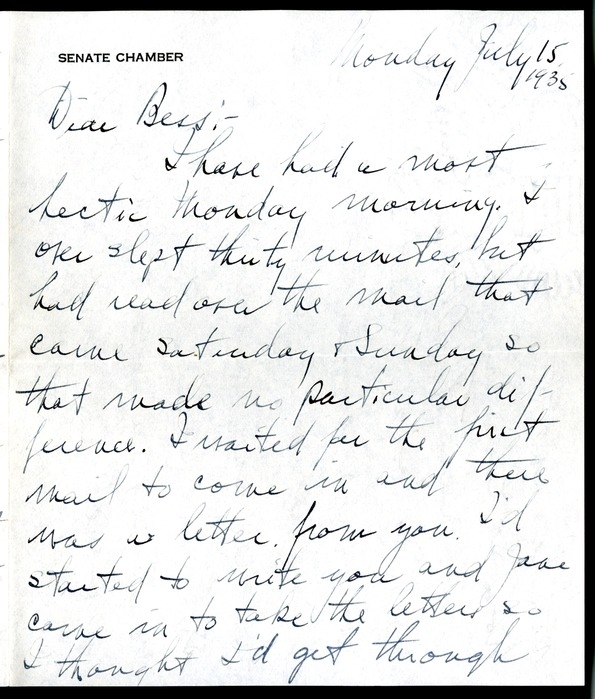 SENATE CHAMBER
Monday July 15,
1935
Dear Bess:-
I have had a most
hectic Monday morning. I
over slept thirty minutes, but
had read over the mail that
came Saturday & Sunday so
that made no particular dif-
ference. I waited for the first
mail to come in and there
was a letter from you. I'd
started to write you and Jane
came in to take the letters so
I thought I'd get through